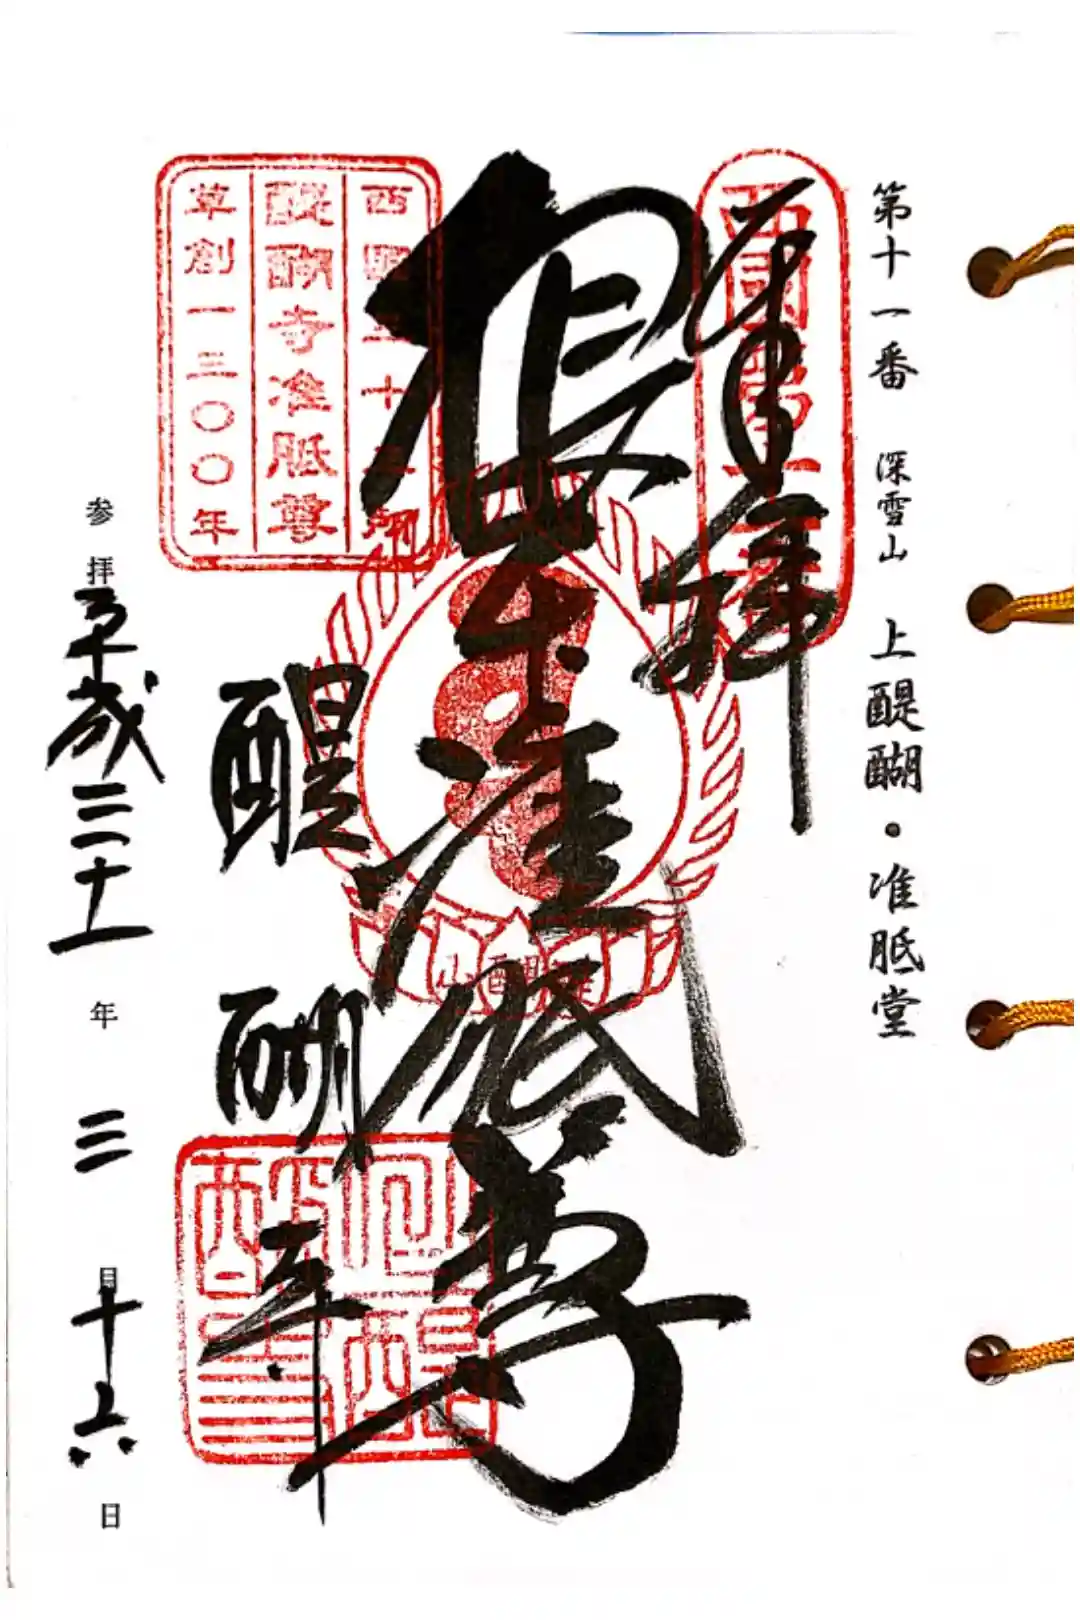 第十一番 深雪山 上醍醐・准胝堂
奉拝
根本准胝尊
醍醐寺
西国三十三所
醍醐寺准胝尊
草創一三〇〇年
参拝 平成三十一年 三月 十六日